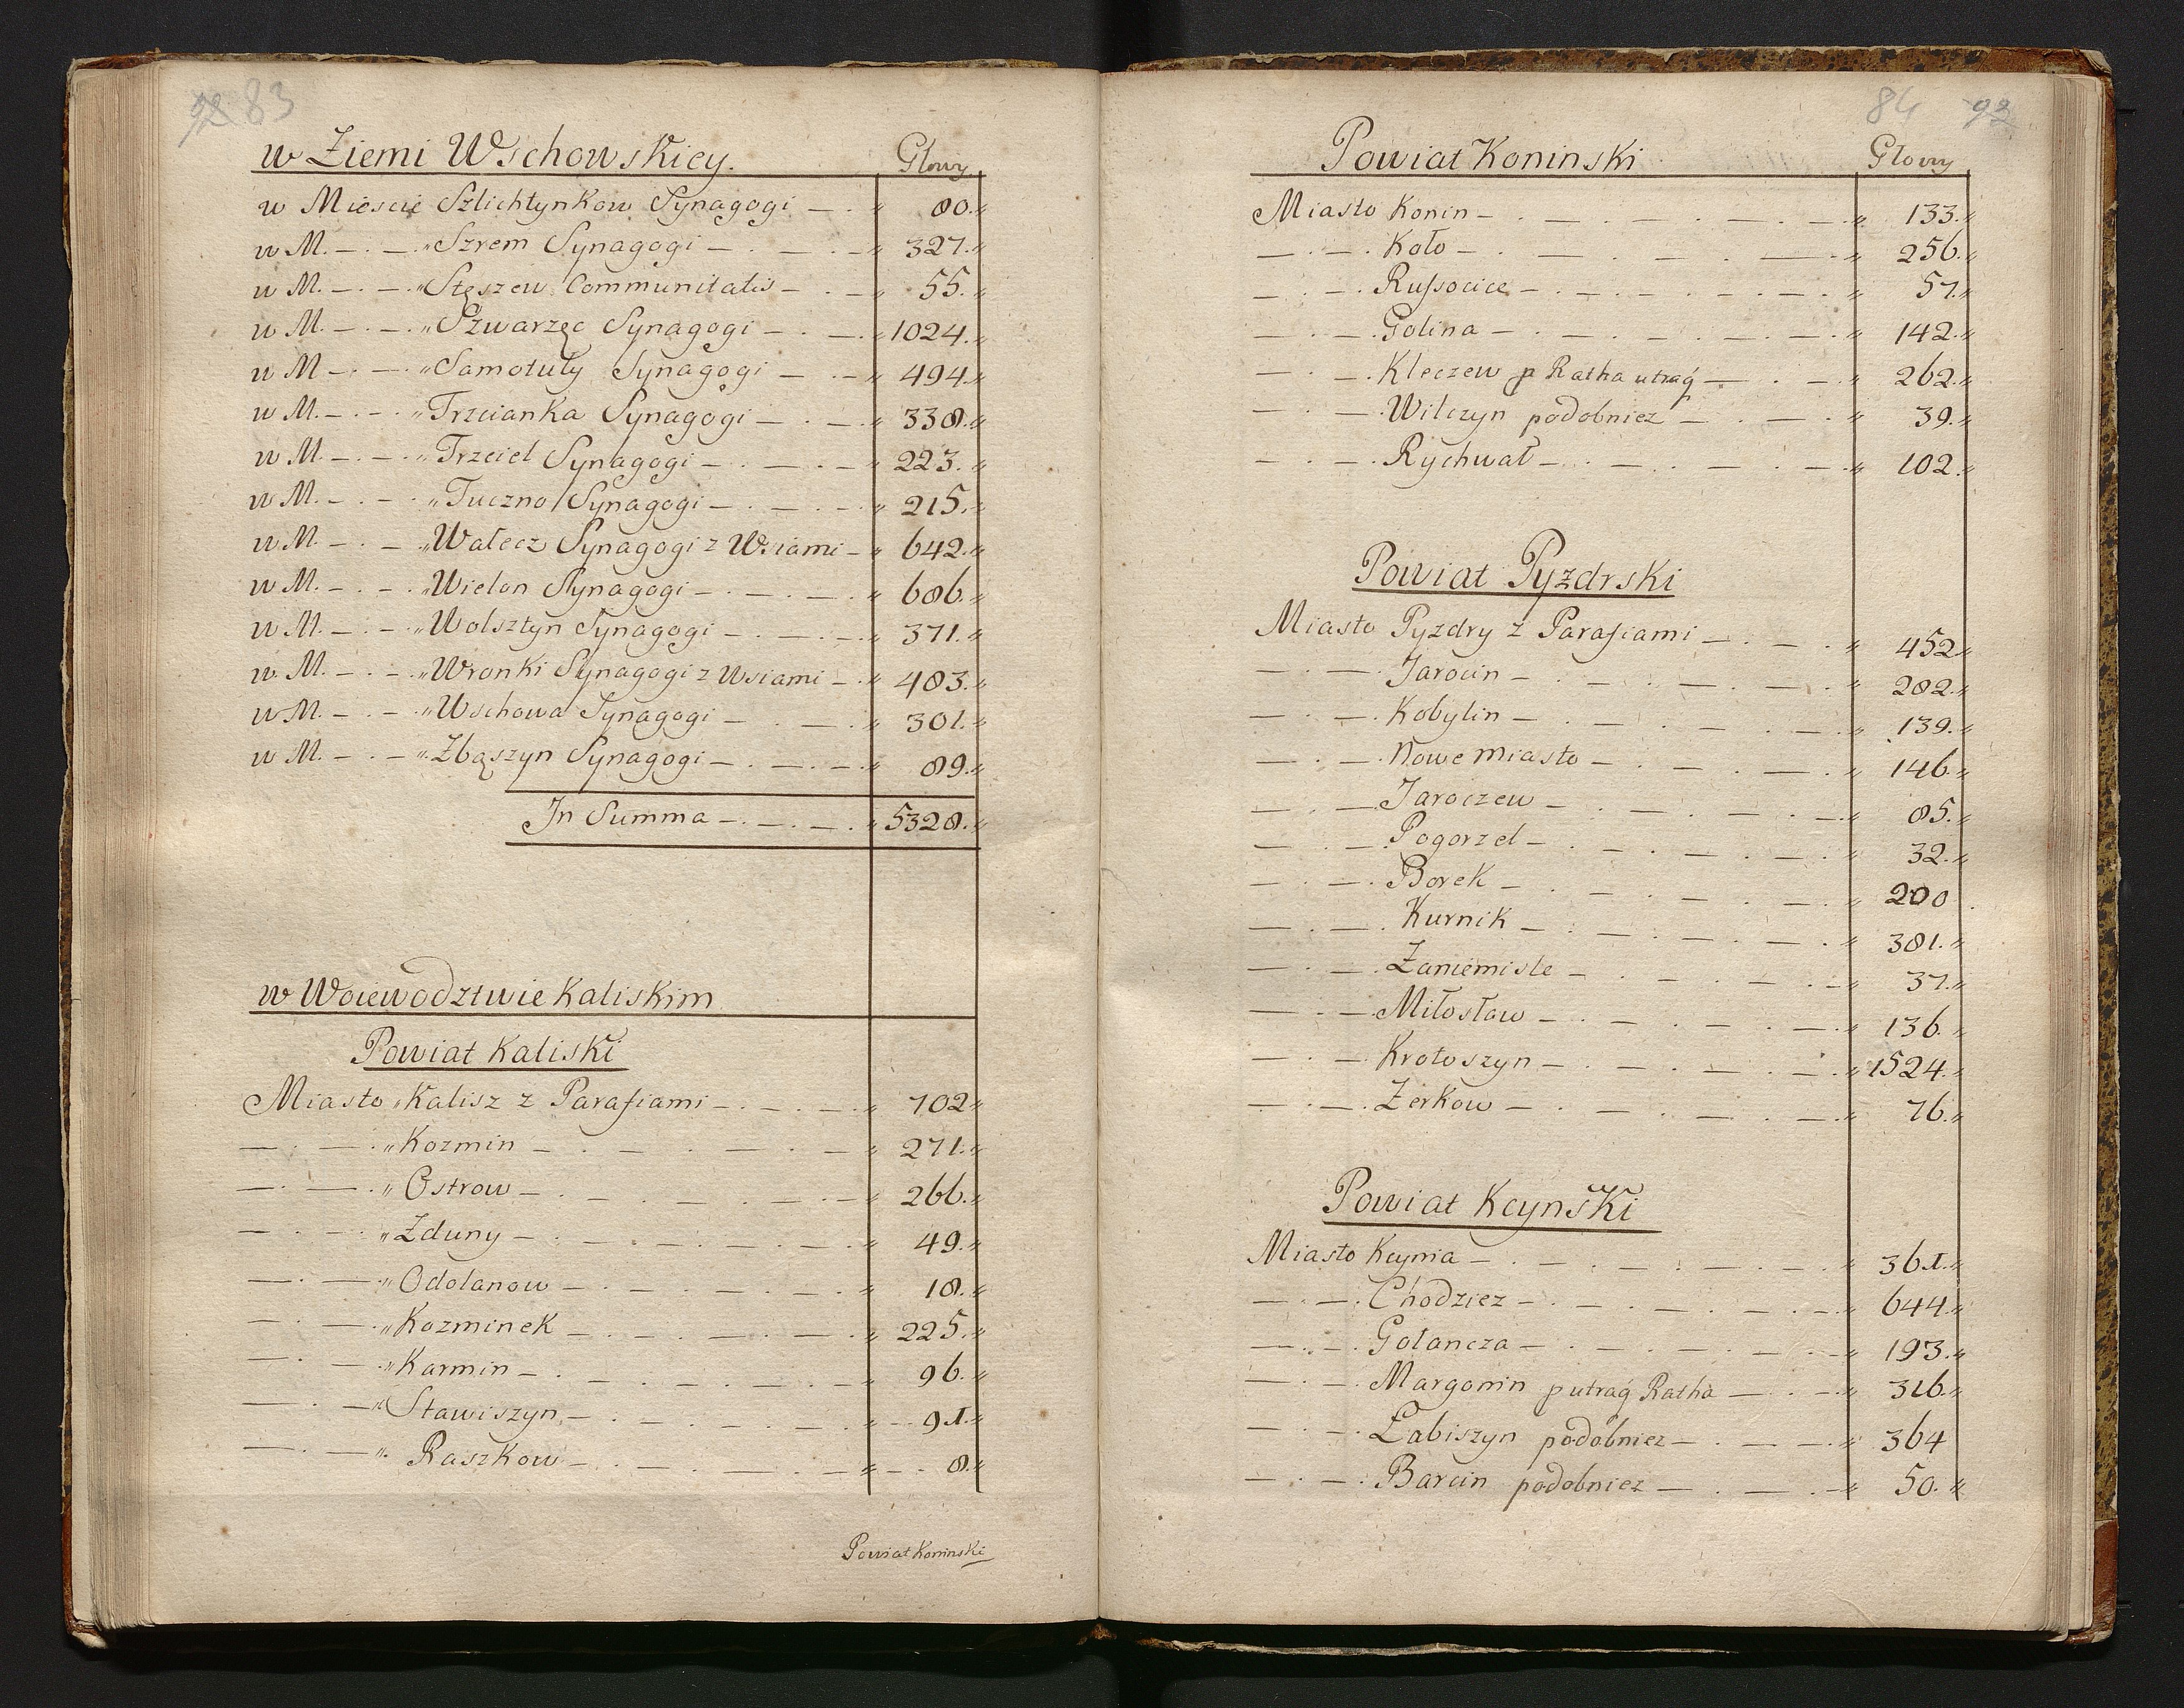 83
w Ziemi Wschowskiey. Głowy
w Miescie Szlichtynkow Synagogi — . „ 80.„
w M. — . — „Szrem Synagogi — . — . „ 327.„
w M. — . — „Stęszew Communitatis — . — „ 55.„
w M. — . — „Szwarzęc Synagogi — . — „ 1024.„
w M — . — „Samotuły Synagogi — . — „ 494.„
w M. — . — „Trzcianka Synagogi — . — „ 338.„
w M. — . — „Trzciel Synagogi — . — . — „ 223.„
w M. — . — „Tuczno Synagogi — . — . — „ 215.„
w M. — . — „Wałecz Synagogi z Wsiami — „ 642.„
w M. — . — „Wielon Synagogi — . — . — „ 686.„
w M. — . — „Wolsztyn Synagogi — . — . „ 371.„
w M. — . — „Wronki Synagogi z Wsiami — „ 483.„
w M. — . — „Wschowa Synagogi — . — . „ 301.„
w M. — . — „Zbąszyn Synagogi — . — . — „ 89.„
In Summa — . — . — . „ 5328.„
w Woiewodztwie Kaliskim
Powiat Kaliski
Miasto „Kalisz z Parafiami — . — . — „ 702„
— . — . „Kozmin — . — . — . — „ 271.„
— . — . „Ostrow — . — . — . — „ 266.„
— . — . „Zduny — . — . — . — „ 49.„
— . — . „Odolanow — . — . — . — „ 18.„
— . — . „Kozminek — . — . — . — „ 225.„
— . — . „Karmin — . — . — . — „ 96.„
— . — „Stawiszyn — . — . — . — „ 91.„
— . — „Raszkow — . — . — . — „ 8.„
Powiat Koninski
84 92
Powiat Koninski Głowy
Miasto Konin — . — . — . — . — „ 133.„
— . — . Koło — . — . — . — „ 256.„
— . — . Russocice — . — . — . — . „ 57.„
— . — . Golina — . — . — . — . „ 142.„
— . — . Kleczew p Ratha utraq — . — „ 262.„
— . — . Wilczyn podobniez — . — . „ 39.„
— . — . Rychwał — . — . — . — „ 102.„
Powiat Pyzdrski
Miasto Pyzdry z Parafiami — . — . „ 452„
— . — . Jarocin — . — . — . — . „ 282.„
— . — . Kobylin — . — . — . — . „ 139.„
— . — . Nowe Miasto — . — . — . „ 146.„
— . — . Jaroczew — . — . — . — „ 85.„
— . — . Pogorzel — . — . — . — . „ 32.„
— . — . Borek — . — . — . — . „ 200
— . — . Kurnik — . — . — . — . „ 381.„
— . — . Zaniemisle — . — . — . — „ 37.„
— . — . Miłosław — . — . — . — „ 136.„
— . — . Krotoszyn — . — . — . — „ 1524.„
— . — . Zerkow — . — . — . — . „ 76.„
Powiat Kcynski
Miasto Kcynia — . — . — . — . — „ 361.„
— . — . Chodziez — . — . — . — „ 644.„
— . — . Gołancza — . — . — . — . „ 193.„
— . — . Margonin p utraq Ratha — . — „ 316.„
— . — . Łabiszyn podobniez — . — . „ 364
— . — . Barcin podobniez — . — . — „ 50.„